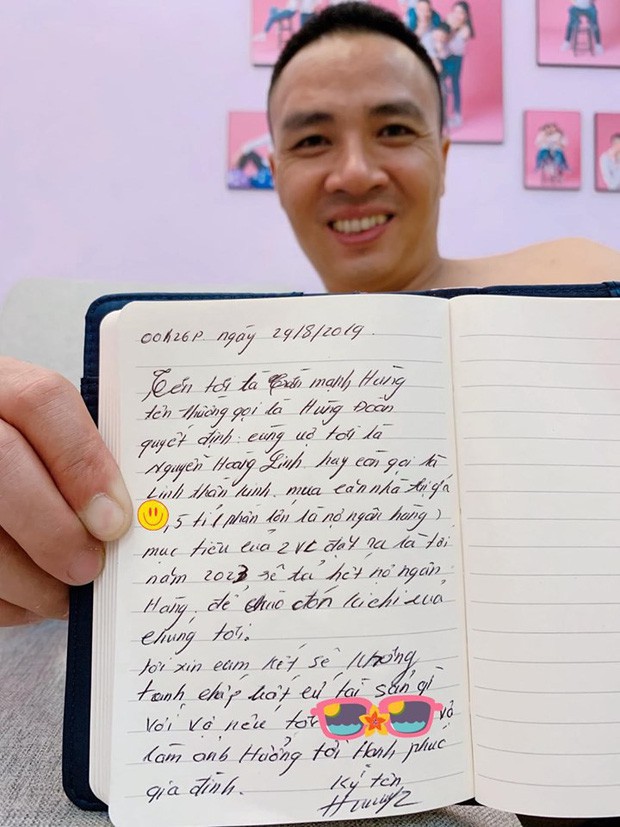 00h26p ngày 29/8/2019.
Tên tôi là Trần mạnh Hùng
tên thường gọi là Hùng Đoàn
quyết định cùng vợ tôi là
Nguyễn Hoàng Linh hay còn gọi là
Linh thần kinh. mua căn nhà trị giá
,5 tỉ (phần lớn là nợ ngân hàng)
mục tiêu của 2vc đặt ra là tới
năm 2023 sẽ trả hết nợ ngân
Hàng. để chào đón kichi của
chúng tôi.
tôi xin cam kết sẽ không
tranh chấp bất cứ tài sản gì
với vợ nếu tôi
làm ảnh Hưởng tới Hạnh phúc
gia đình. Ký tên